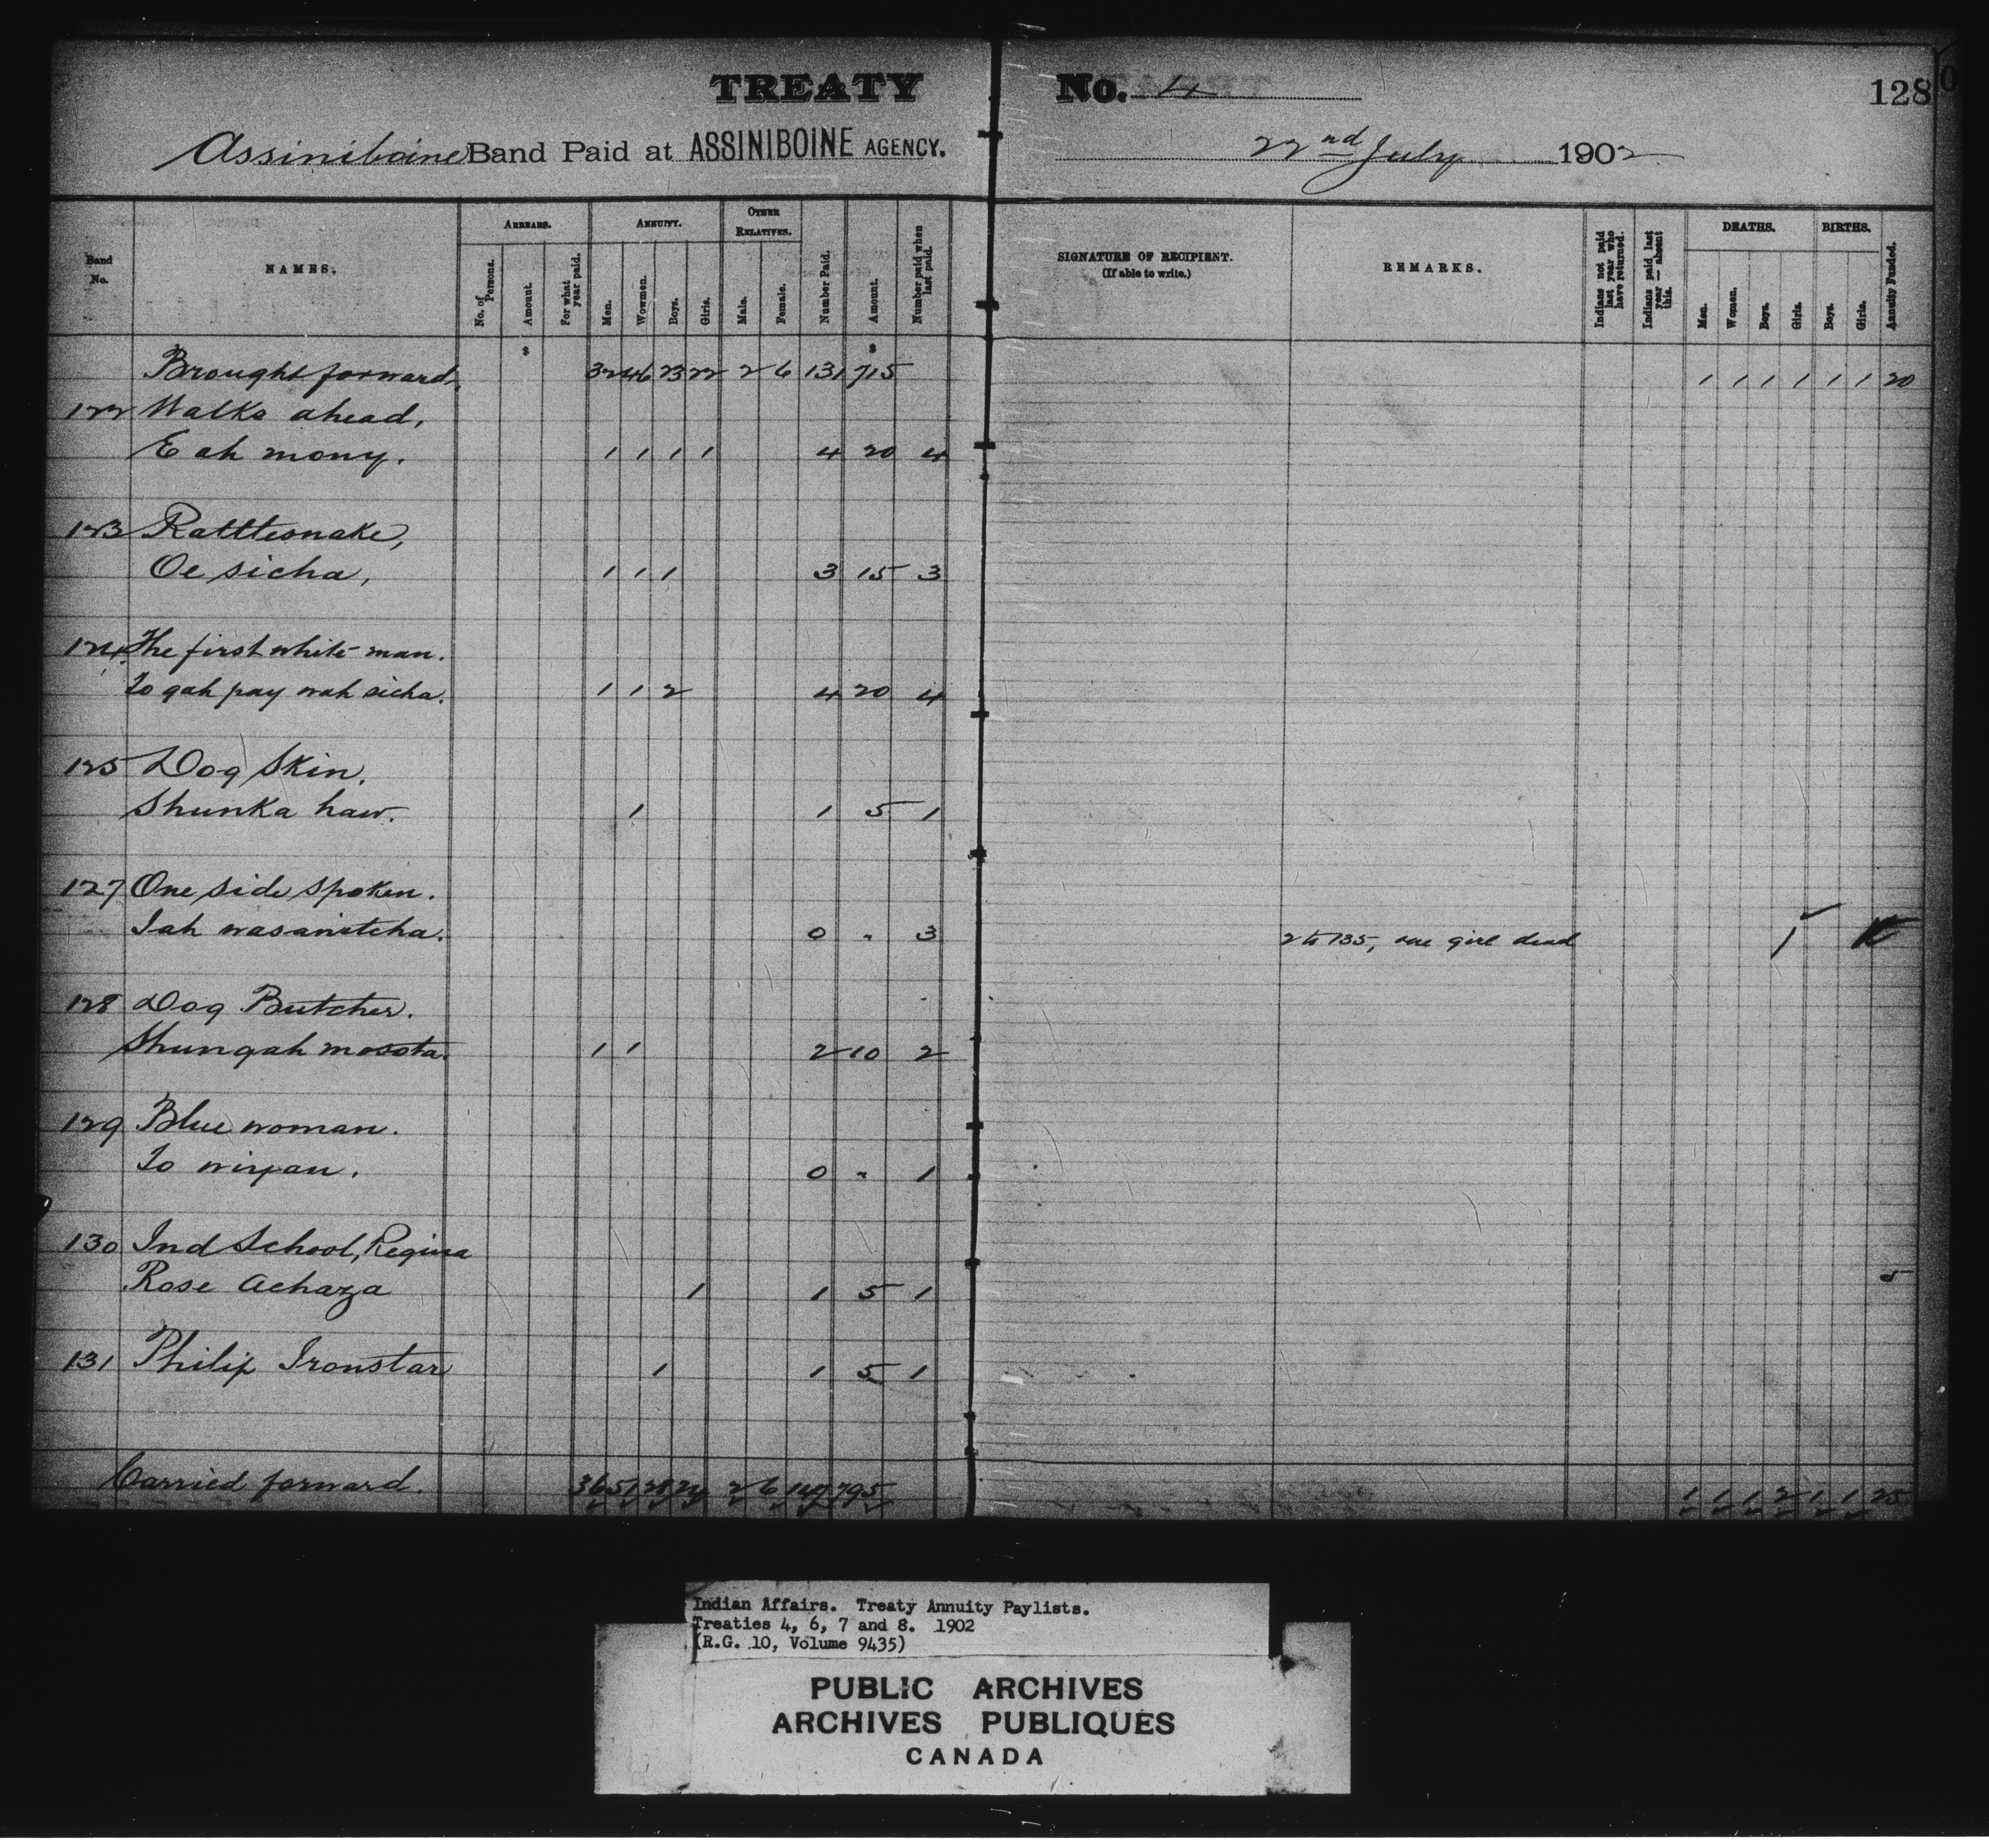 TREATY No. 4 128
Assiniboine Band Paid at ASSINIBOINE AGENCY. 22nd July 1902
Band No. NAMES. ARREARS. No. of Persons. Amount. For what year paid. ANNUITY. Men. Wowmen. Boys. Girls. OTHER RELATIVES. Male. Female. Number Paid. Amount. Number paid when last paid. SIGNATURE OF RECIPIENT. (If able to write.) REMARKS. Indians not paid last year who have returned. Indians paid last year — absent this. DEATHS. Men. Women. Boys. Girls. BIRTHS. Boys. Girls. Annuity Funded.
$ $
Brought forward, 32 46 23 22 2 6 131 715 1 1 1 1 1 1 20
122 Walks ahead,
E ah mony. 1 1 1 1 4 20 4
123 Rattlesnake,
Oe sicha, 1 1 1 3 15 3
124 The first white man.
To gah pay wah sicha. 1 1 2 4 20 4
125 Dog Skin.
Shunka haw. 1 1 5 1
127 One side spoken.
Iah wasanitcha. 0 " 3 2 to 135, one girl dead 1
128 Dog Butcher.
Shungah mosota. 1 1 2 10 2
129 Blue woman.
To wiyan. 0 " 1
130 Ind School, Regina
Rose Achaza 1 1 5 1 5
131 Philip Ironstar 1 1 5 1
Carried forward. 36 51 28 24 2 6 147 795 1 1 1 2 1 1 25
Indian Affairs. Treaty Annuity Paylists.
Treaties 4, 6, 7 and 8. 1902
(R.G. 10, Volume 9435)
PUBLIC ARCHIVES
ARCHIVES PUBLIQUES
CANADA